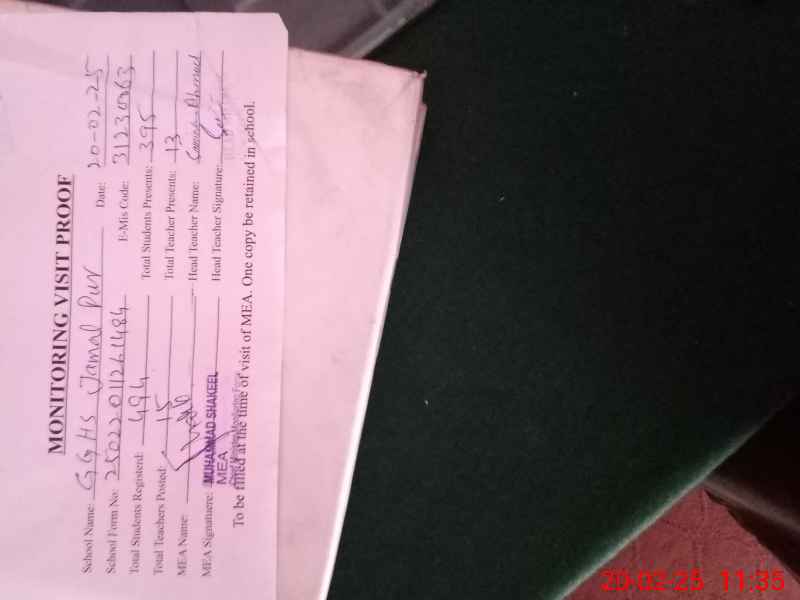 MONITORING VISIT PROOF
School Name: GGHS Jamal Pur Date: 20-02-25
School Form No: E-Mis Code: 31230363
Total Students Registerd: 494 Total Students Presents: 395
Total Teachers Posted: 15 Total Teacher Presents: 13
MEA Name: Head Teacher Name:
MEA Signatuere: MUHAMMAD SHAKEEL Head Teacher Signature:
MEA
To be filled at the time of visit of MEA. One copy be retained in school.
20-02-25 11:35